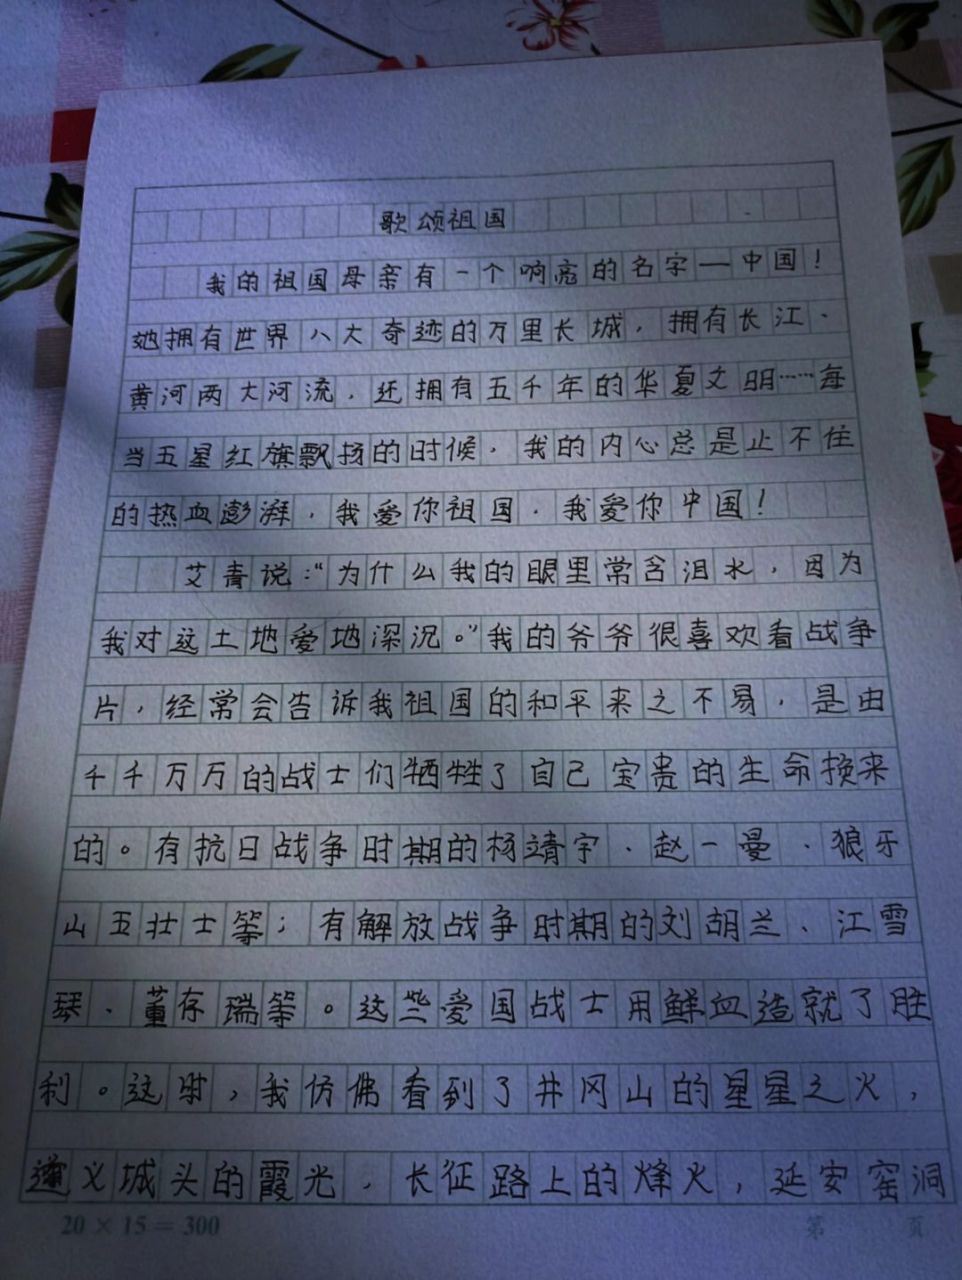 歌颂祖国
我的祖国母亲有一个响亮的名字—中国！
她拥有世界八大奇迹的万里长城，拥有长江、
黄河两大河流，还拥有五千年的华夏文明……每
当五星红旗飘扬的时候，我的内心总是止不住
的热血澎湃，我爱你祖国，我爱你中国！
艾青说：“为什么我的眼里常含泪水，因为
我对这土地爱地深沉。”我的爷爷很喜欢看战争
片，经常会告诉我祖国的和平来之不易，是由
千千万万的战士们牺牲了自己宝贵的生命换来
的。有抗日战争时期的杨靖宇、赵一曼、狼牙
山五壮士等；有解放战争时期的刘胡兰、江雪
琴、董存瑞等。这些爱国战士用鲜血造就了胜
利。这时，我仿佛看到了井冈山的星星之火，
遵义城头的霞光，长征路上的烽火，延安窑洞
20×15＝300
第 页